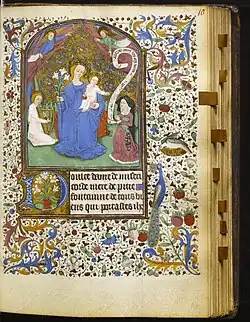 10
oulce dame de miseri
corde mere de pitie
fontainne de tous bi
ens qui portastes ihe